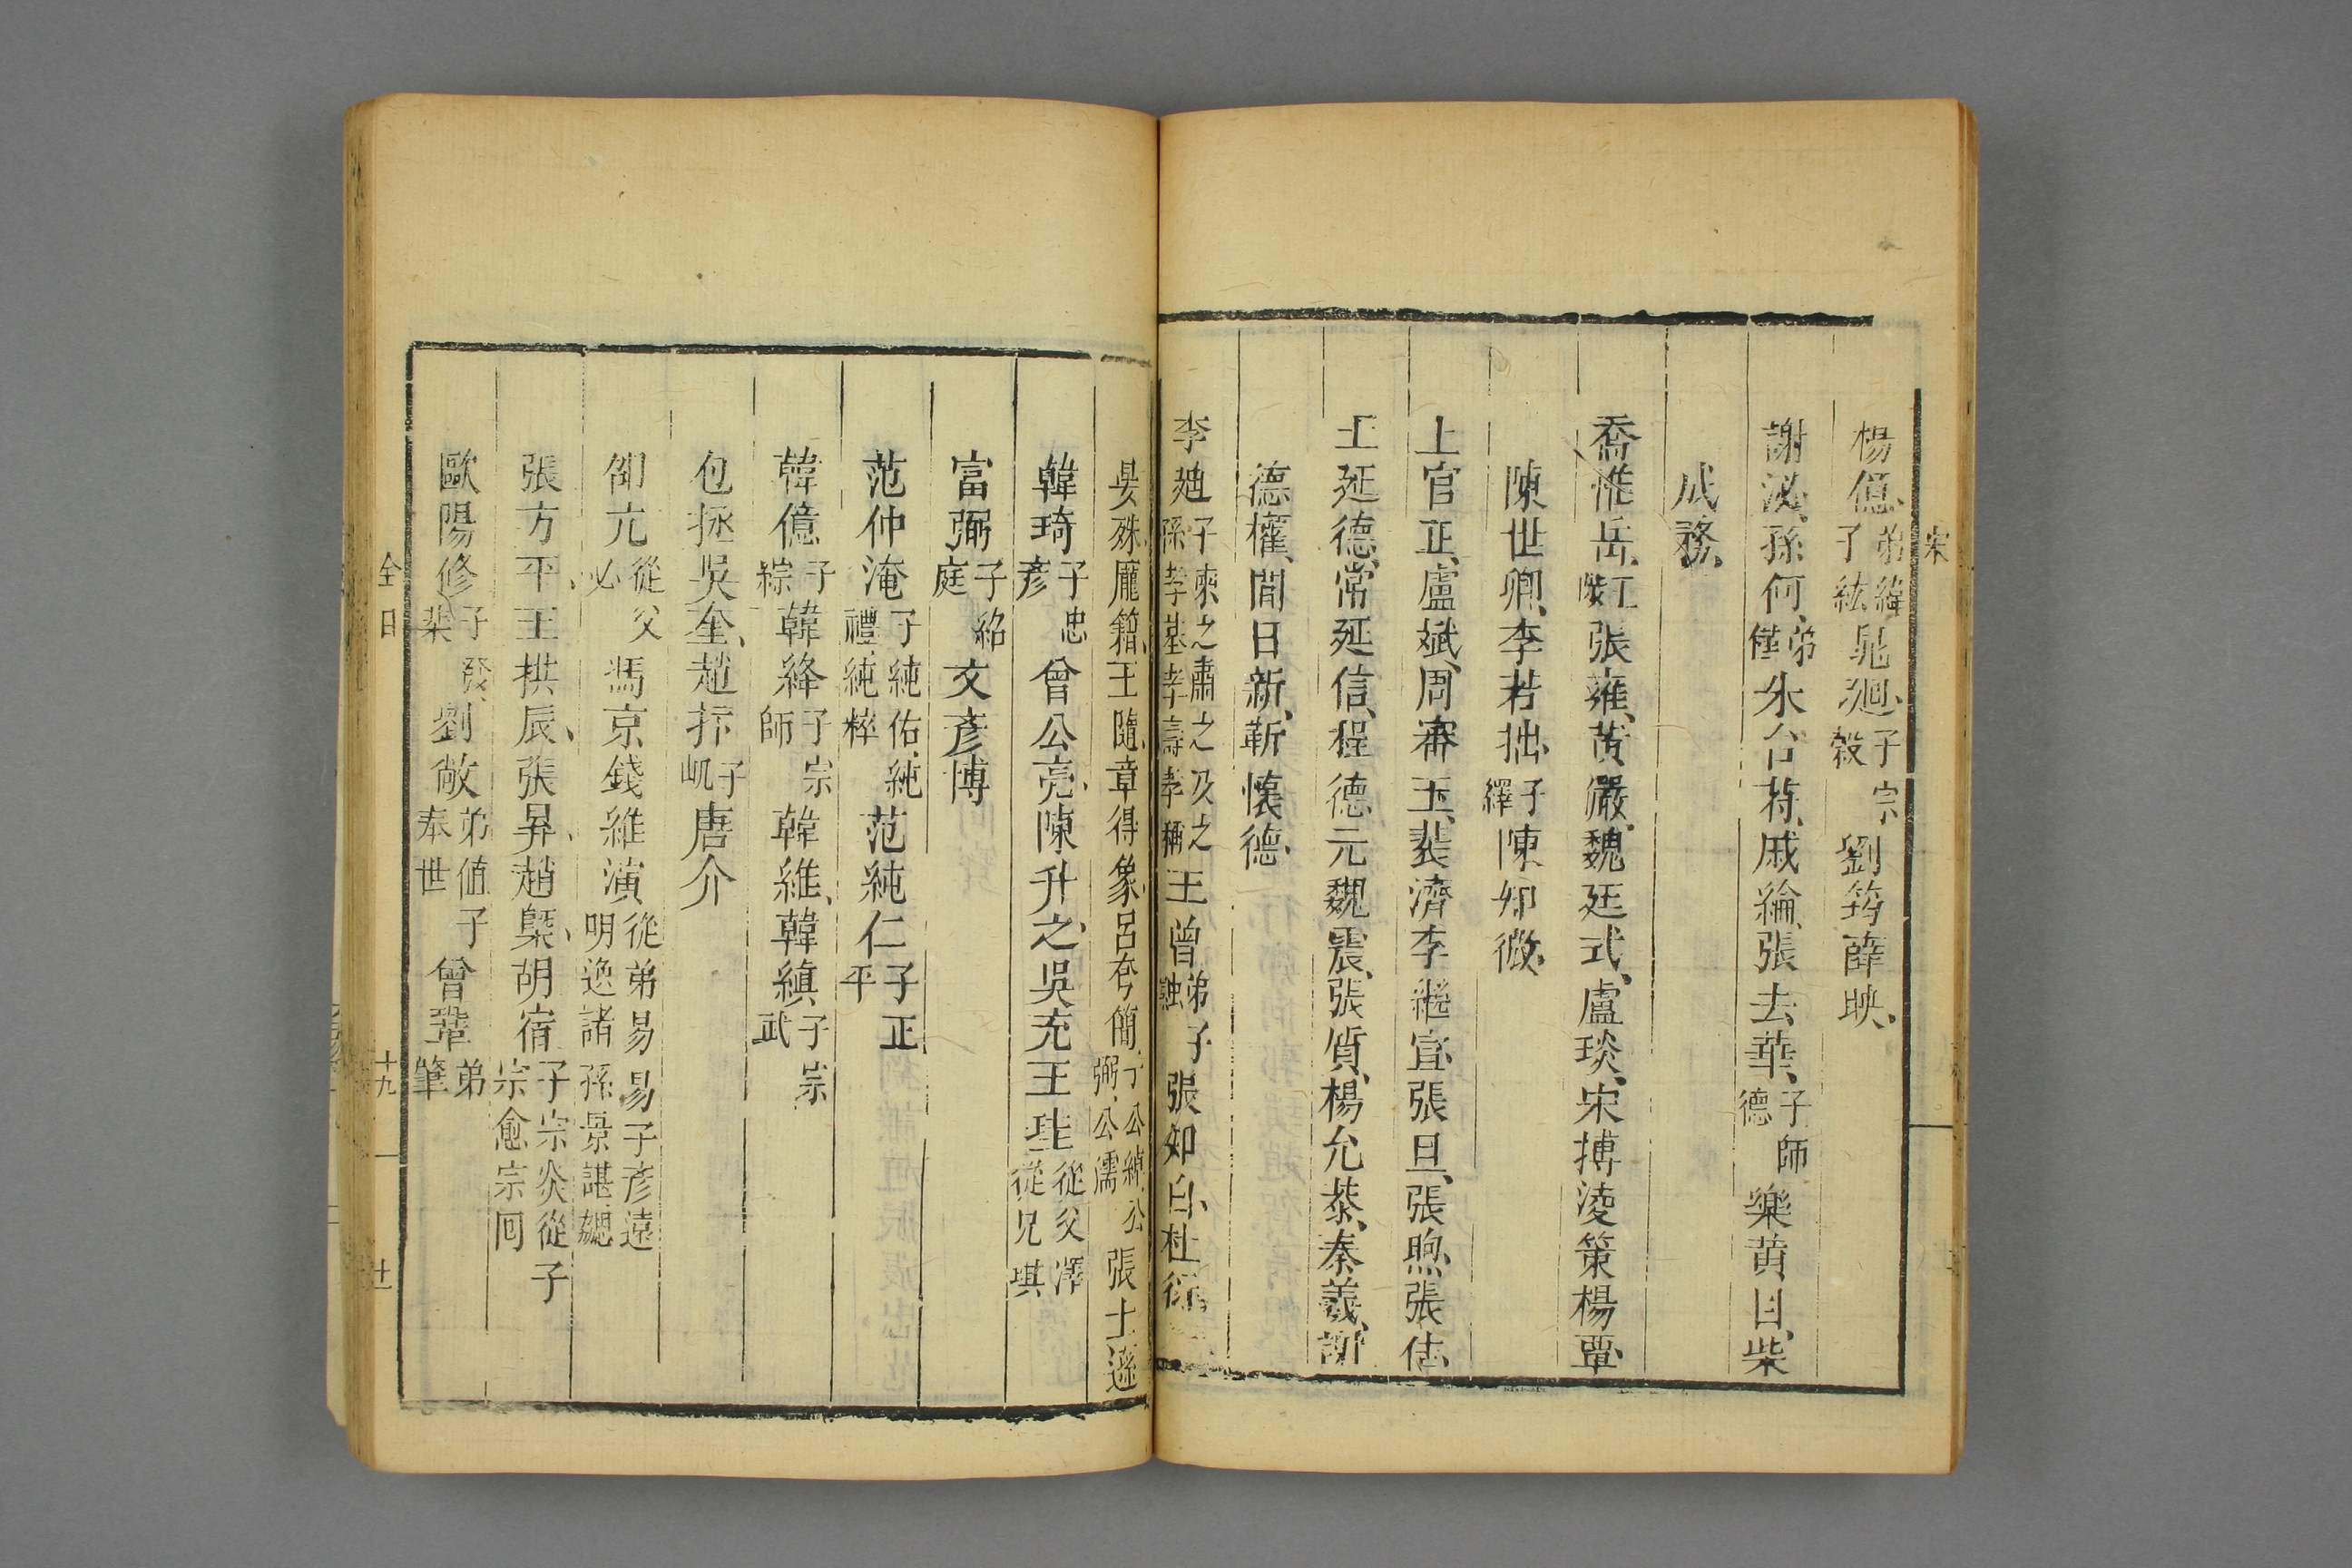 宋
楊億弟緯子紘晁迥子宗慤劉筠薛映
謝泌孫何弟僅朱台符戚綸張去華子師德樂黃目柴
成務
喬惟岳張雍黃嚴魏廷式盧琰宋搏淩策楊覃
陳世卿李若拙子繹陳知微
上官正盧斌周審玉裴濟李繼宣張旦張煦張佶
王延德常延信程德元魏震張質楊允恭秦羲謝
德權閻日新靳懷德
李廸子柬之肅之及之孫孝基孝壽孝稱王曾弟子融張知白杜衍
晏殊龎籍王隨章得象呂夷簡子公綽公弼公孺張士遜
韓琦子忠彥曾公亮陳升之吳充王珪從父罕從兄琪
富弼子紹庭文彥博
范仲淹子純佑純禮純粹范純仁子正平
韓億子綜韓絳子宗師韓維韓縝子宗武
包拯吳奎趙抃子㞦唐介
邵亢從父必馮京錢維演從弟易易子彥遠明逸諸孫景諶勰
張方平王拱辰張昇趙槩胡宿子宗炎從子宗愈宗囘
歐陽修子發棐劉敞弟攽子奉世曾鞏弟肇
全目
十九
廿一